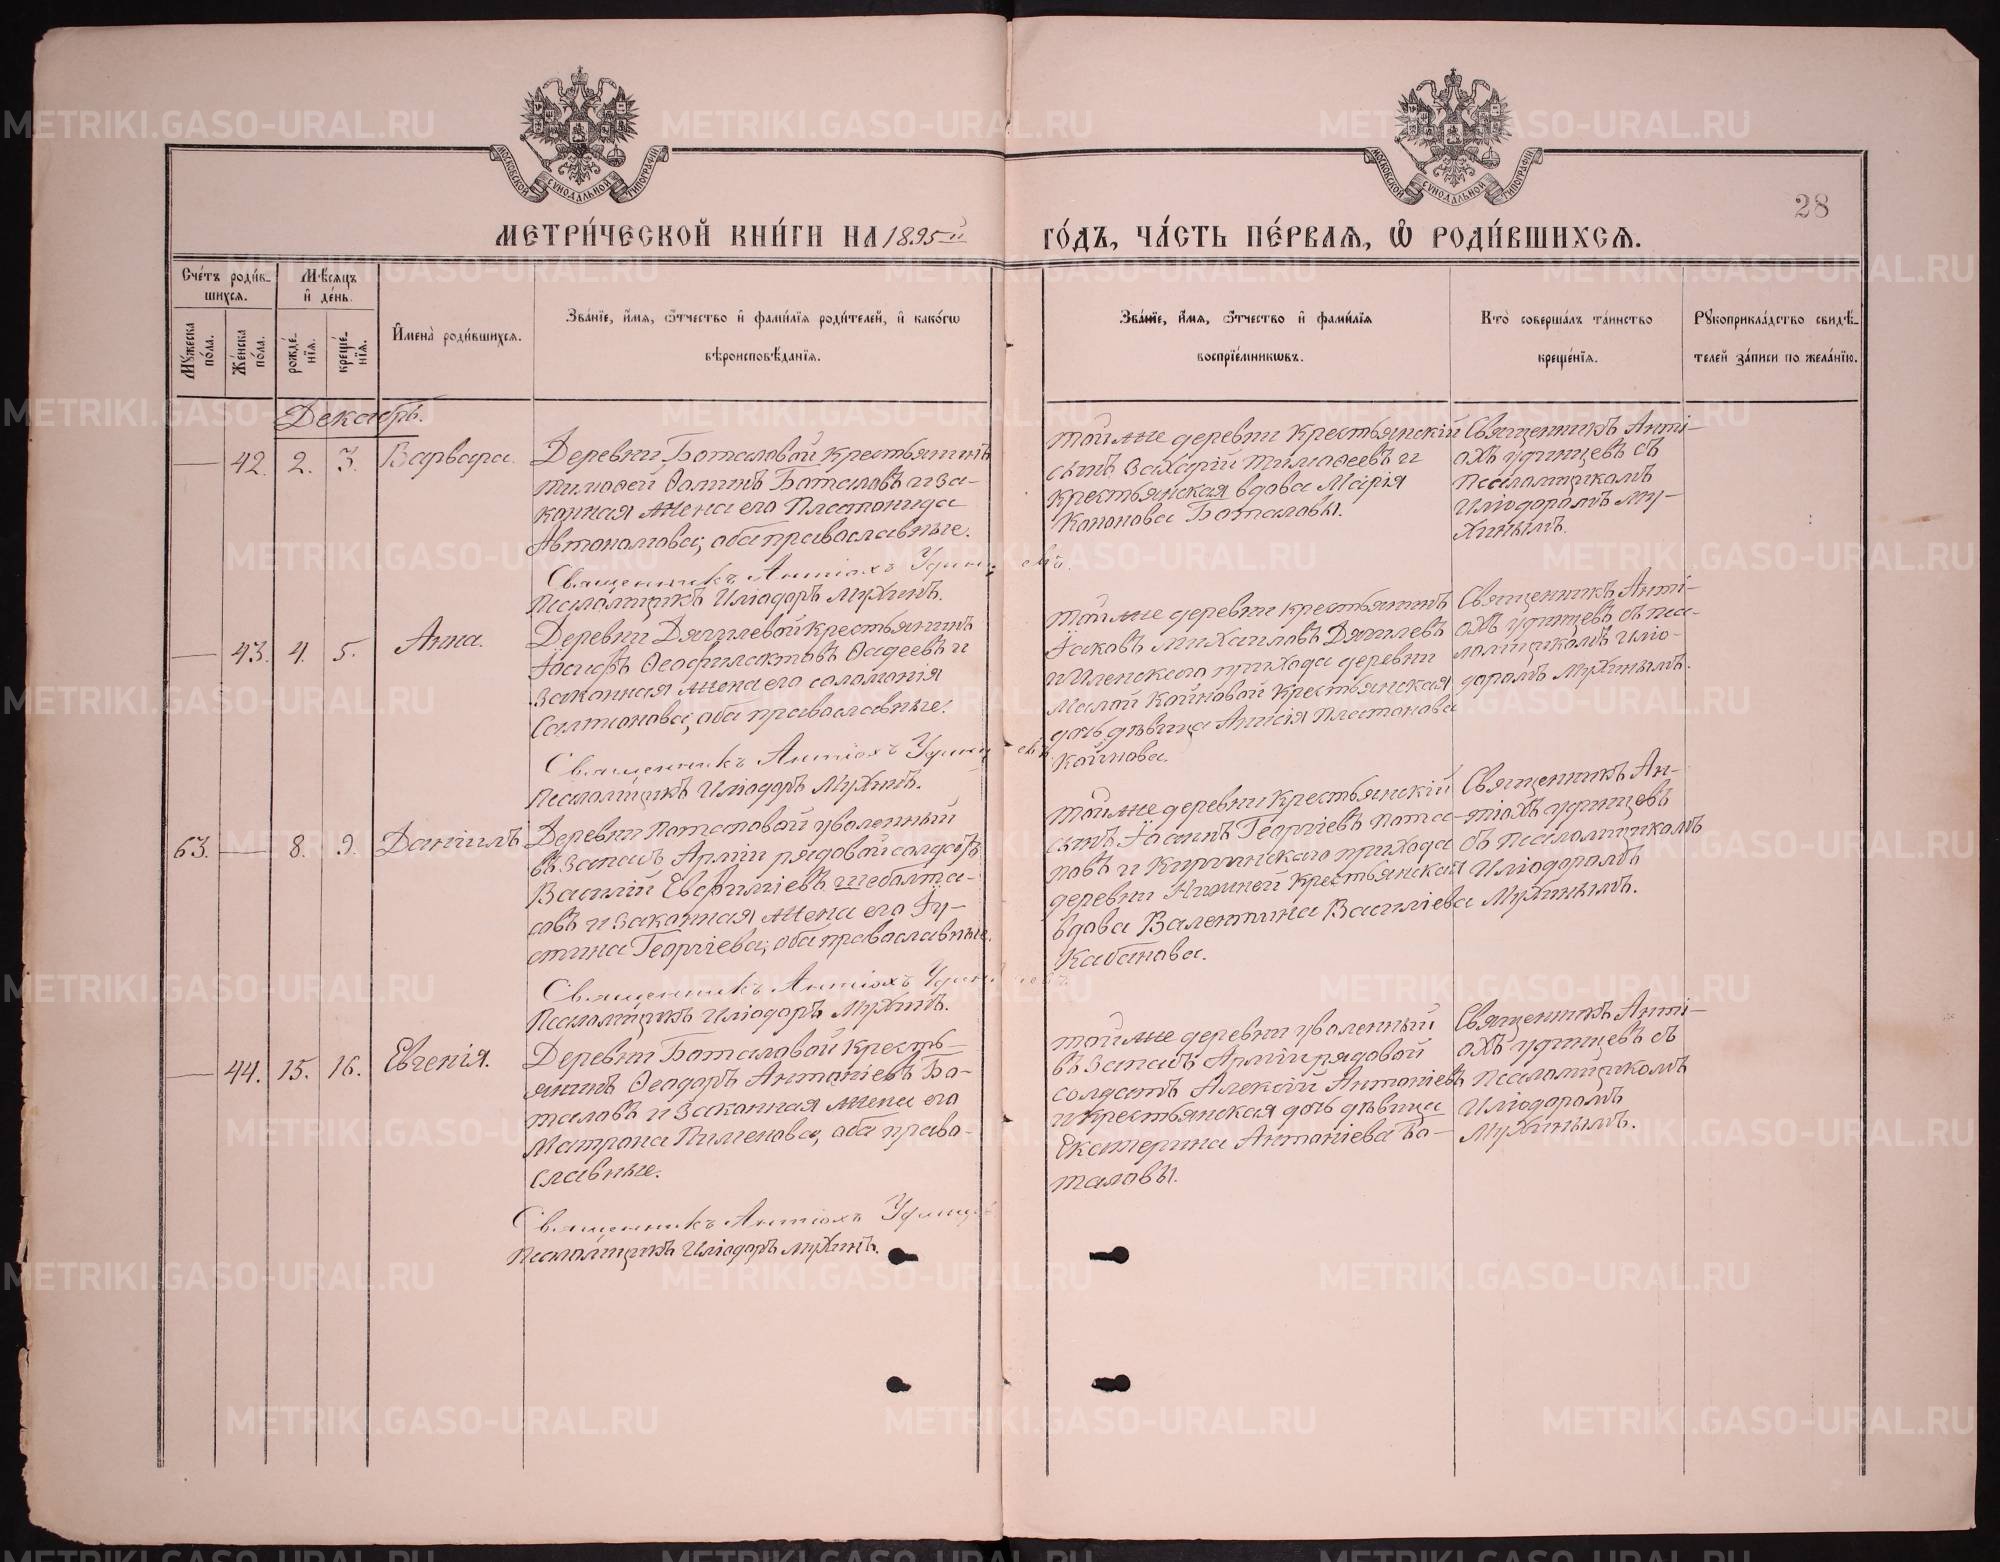 МОСКОВСКОЙ СУНОДАЛЬНОЙ ТИПОГРАФІИ
МОСКОВСКОЙ СУНОДАЛЬНОЙ ТИПОГРАФІИ
28
МЕТРИ́ЧЕСКОЙ КНИ́ГИ НА 1895й ГО́ДЪ, ЧА́СТЬ ПЕ́РВАѦ, Ѡ РОДИ́ВШИХСѦ.
Сче́тъ роди́в-
шихсѧ.
Мꙋжеска по́ла.
Же́нска по́ла.
Мѣ́сѧцъ
и҆ де́нь.
рожде́-
нїѧ.
креще́-
нїѧ.
И҆мена̀ роди́вшихсѧ.
Зва́нїе, и҆́мѧ, ѻ҆́тчество и҆ фами́лїѧ роди́телей, и҆ како́гѡ
вѣроисповѣ́данїѧ.
Зва́нїе, и҆́мѧ, ѻ҆́тчество и҆ фами́лїѧ
воспрїе́мникѡвъ.
Кто̀ соверша́лъ та́инство
креще́нїѧ.
Рꙋкоприкла́дство свидѣ́-
телей за́писи по жела́нїю.
Декабрь.
— 42. 2. 3. Варвара.
Деревни Боталовой крестьянинъ
Тимоѳей Ѳоминъ Боталовъ и за-
конная жена его Платонида
Автономова; оба православные.
Священникъ Антіохъ Удинцевъ.
Псаломщикъ Иліодоръ Мухинъ.
Той же деревни крестьянскій
сынъ Захарій Тимоѳеевъ и
крестьянская вдова Марія
Кононова Боталовы.
Священникъ Анті-
охъ Удинцевъ съ
псаломщикомъ
Иліодоромъ Му-
хинымъ.
— 43. 4. 5. Анна.
Деревни Дягилевой крестьянинъ
Іосифъ Ѳеофилактовъ Ѳадеевъ и
законная жена его Соломонія
Салтанова; оба православные.
Священникъ Антіохъ Удинцевъ.
Псаломщикъ Иліодоръ Мухинъ.
Той же деревни крестьянинъ
Іаковъ Михаиловъ Дягилевъ
и Шленскаго прихода деревни
Малой Койновой крестьянская
дочь дѣвица Анисія Платонова
Койнова.
Священникъ Анті-
охъ Удинцевъ съ пса-
ломщикомъ Иліо-
доромъ Мухинымъ.
63. — 8. 9. Даніилъ
Деревни Потаповой уволенный
въ запасъ Арміи рядовой солдатъ
Василій Евѳиміевъ Шебалта-
совъ и законная жена его Іу-
стина Георгіева; оба православные.
Священникъ Антіохъ Удинцевъ
Псаломщикъ Иліодоръ Мухинъ.
Той же деревни крестьянскій
сынъ Іоаннъ Георгіевъ Пота-
повъ и Киргинскаго прихода
деревни Нижней крестьянская
вдова Валентина Василіева
Кабанова.
Священникъ Ан-
тіохъ Удинцевъ
съ псаломщикомъ
Иліодоромъ
Мухинымъ.
— 44. 15. 16. Евгенія.
Деревни Боталовой кресть-
янинъ Ѳеодоръ Антоніевъ Бо-
таловъ и законная жена его
Матрона Пименова; оба право-
славные.
Священникъ Антіохъ Удинцев
Псаломщикъ Иліодоръ Мухинъ.
Той же деревни уволенный
въ запасъ Арміи рядовой
солдатъ Алексій Антоніевъ
и крестьянская дочь дѣвица
Екатерина Антоніева Бо-
таловы.
Священникъ Анті-
охъ Удинцевъ съ
псаломщикомъ
Иліодоромъ
Мухинымъ.
METRIKI.GASO-URAL.RU